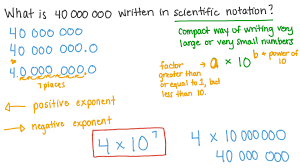 What is 40 000 000 written in scientific notation?
40 000 000
40 000 000.0
4.0 000 000.0
7 places
Compact way of writing very
large or very small numbers
factor
greater than
or equal to 1, but
less than 10.
a × 10^b
power of
10
positive exponent
negative exponent
4 × 10^7
4 × 10 000 000
40 000 000